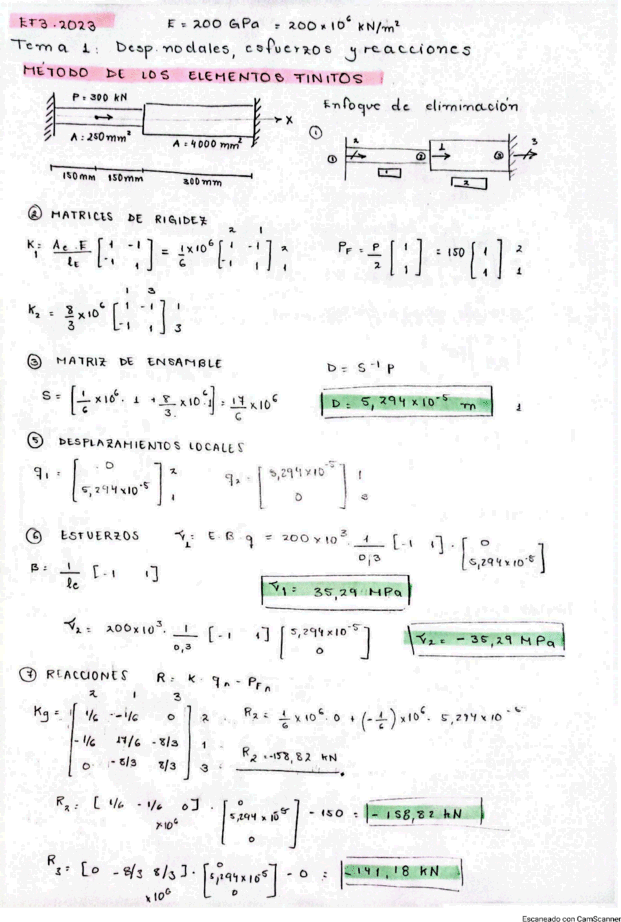 ET3.2023 E = 200 GPa = 200 × 10⁶ KN/m²
Tema 1: Desp. nodales, esfuerzos y reacciones
MÉTODO DE LOS ELEMENTOS TINITOS
P = 300 KN
A = 250 mm²
A = 4000 mm²
X
150mm 150mm 300mm
Enfoque de eliminación
① 2 1 3
① ② ③
1 2
② MATRICES DE RIGIDEZ
2 1
K₁ = Ae.E/le [1 -1; -1 1] = 1/6 ×10⁶ [1 -1; -1 1] 2 1
PF = P/2 [1; 1] = 150 [1; 1] 2 1
1 3
K₂ = 8/3 ×10⁶ [1 -1; -1 1] 1 3
③ MATRIZ DE ENSAMBLE
S = [1/6 ×10⁶. 1 + 8/3. ×10⁶.1] = 17/6 ×10⁶
D = S⁻¹ P
D = 5,294×10⁻⁵ m 1
⑤ DESPLAZAMIENTOS LOCALES
q₁ = [0; 5,294×10⁻⁵] 2 1
q₂ = [5,294×10⁻⁵; 0] 1 3
⑥ ESFUERZOS σ₁ = E.B.q = 200×10³. 1/0,3 [-1 1] . [0; 5,294×10⁻⁵]
B = 1/le [-1 1]
σ₁ = 35,29 MPa
σ₂ = 200×10³. 1/0,3 [-1 1] [5,294×10⁻⁵; 0]
σ₂ = -35,29 MPa
⑦ REACCIONES R = K . qₙ - PFₙ
2 1 3
Kg = [1/6 -1/6 0; -1/6 17/6 -8/3; 0 -8/3 8/3] 2 1 3
R₂ = 1/6 ×10⁶.0 + (-1/6) ×10⁶. 5,294×10⁻⁵
R₂ = -158,82 KN
R₂ = [1/6 -1/6 0] ×10⁶ . [0; 5,294×10⁻⁵; 0] - 150 = -158,82 KN
R₃ = [0 -8/3 8/3] ×10⁶ . [0; 5,294×10⁻⁵; 0] - 0 = -141,18 KN
Escaneado con CamScanner